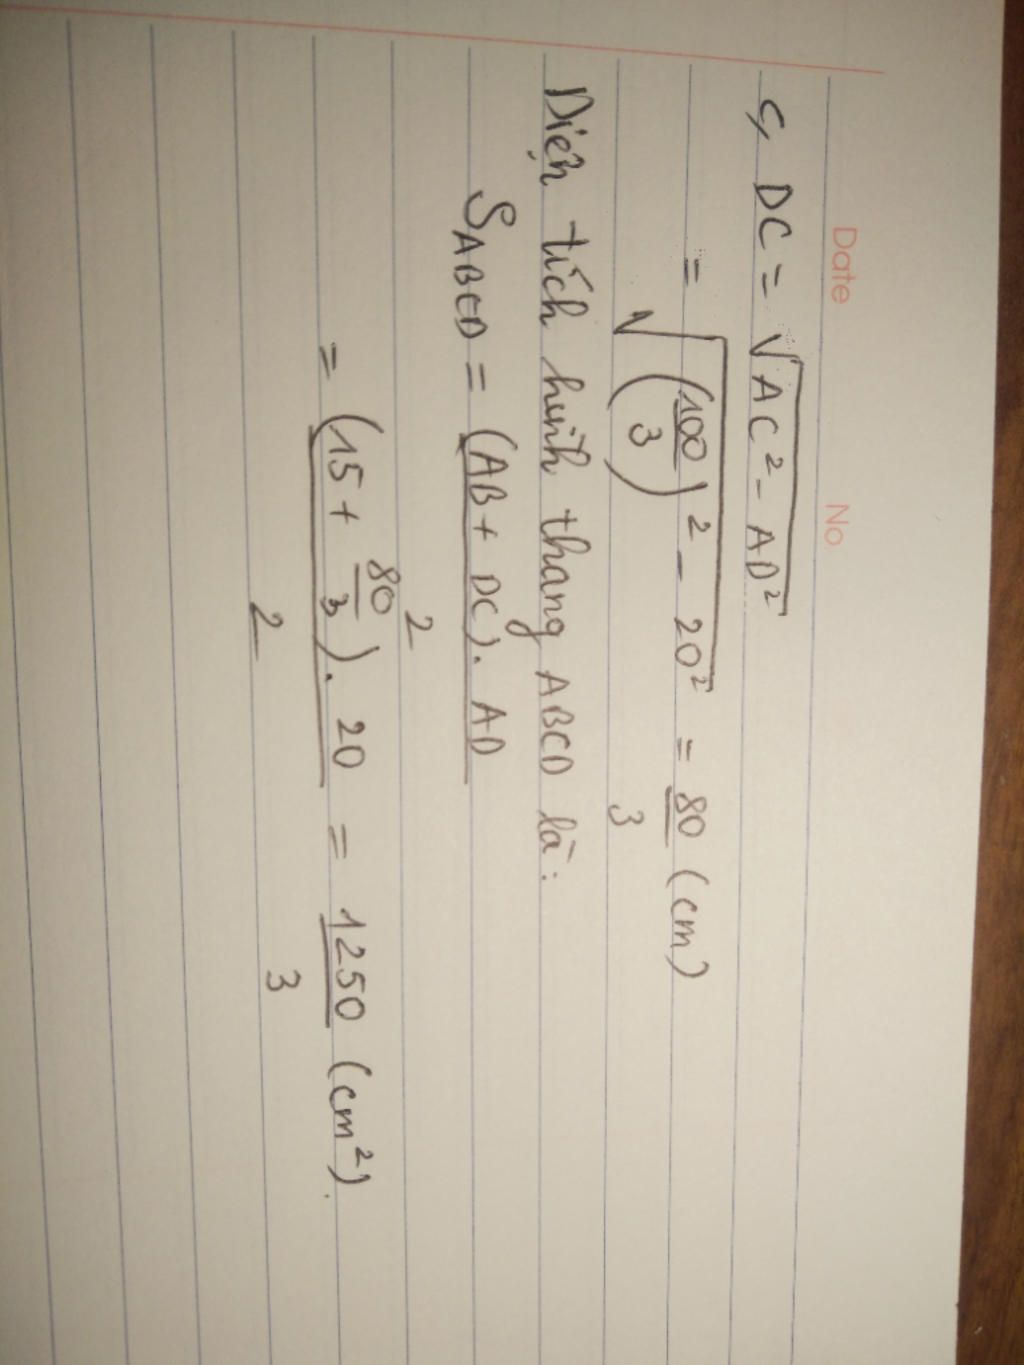 Date No
c, DC = √(AC² - AD²)
= √((100/3)² - 20²) = 80/3 (cm)
Diện tích hình thang ABCD là:
S_ABCD = (AB + DC). AD / 2
= (15 + 80/3). 20 / 2 = 1250/3 (cm²).